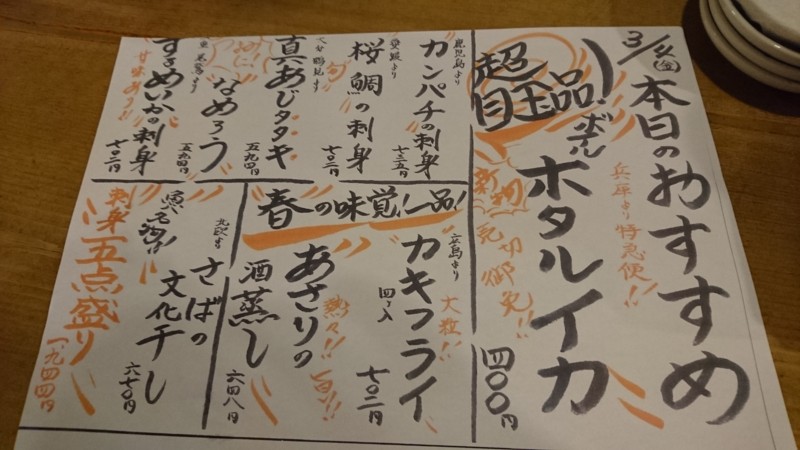 3/4(金)
本日のおすすめ
兵庫より特急便!!
超目玉品!
ボイル
ホタルイカ
四〇〇円
新物
売切御免!!
鹿児島より
カンパチの刺身
七三五円
愛媛より
旬
桜鯛の刺身
七〇二円
真あじタタキ
五九四円
なめろう
五九四円
するめいかの刺身
甘味あり!!
七〇二円
春の味覚!一品!
広島より
カキフライ
大粒!!
四ヶ入
七〇二円
あさりの
酒蒸し
熱々!!
旨!!
六四八円
さばの
文化干し
六七〇円
刺身五点盛り
一、九四四円